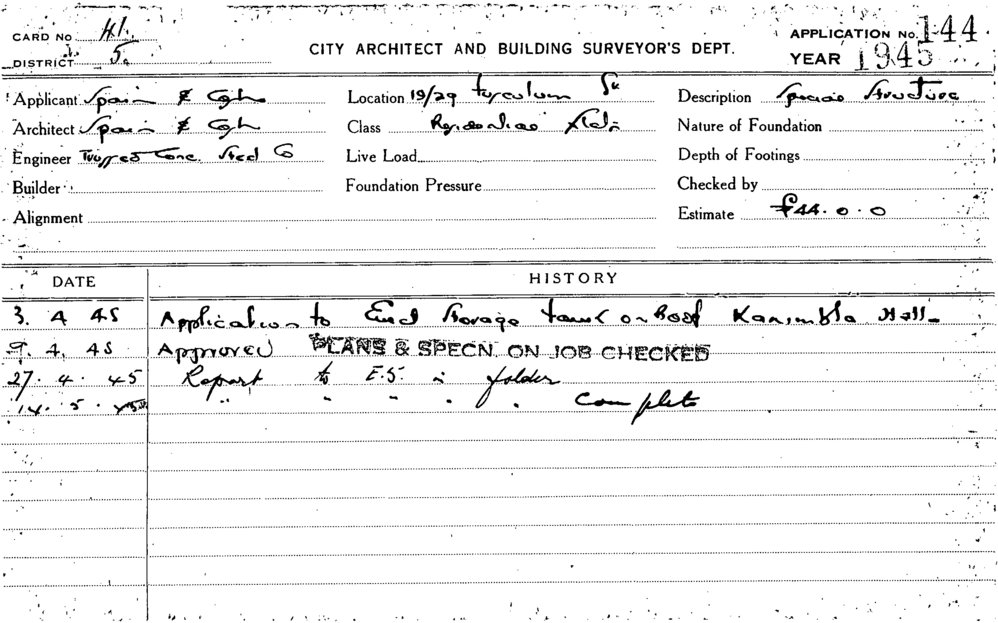 CARD No H1.
DISTRICT 5.
CITY ARCHITECT AND BUILDING SURVEYOR'S DEPT.
APPLICATION No. 144
YEAR 1945
Applicant Spain & Cosh
Location 19/29 Tusculum St
Description Special Structure
Architect Spain & Cosh
Class Residential Flats
Nature of Foundation
Engineer Trussed Conc. Steel Co
Live Load
Depth of Footings
Builder
Foundation Pressure
Checked by
Alignment
Estimate £44.0.0
DATE HISTORY
3. 4 45 Application to Erect Storage tank on Roof Kanimbla Hall
9. 4. 45 Approved PLANS & SPECN. ON JOB CHECKED
27. 4. 45 Report to E.S. in folder
14. 5. 45 " " " " " Complete